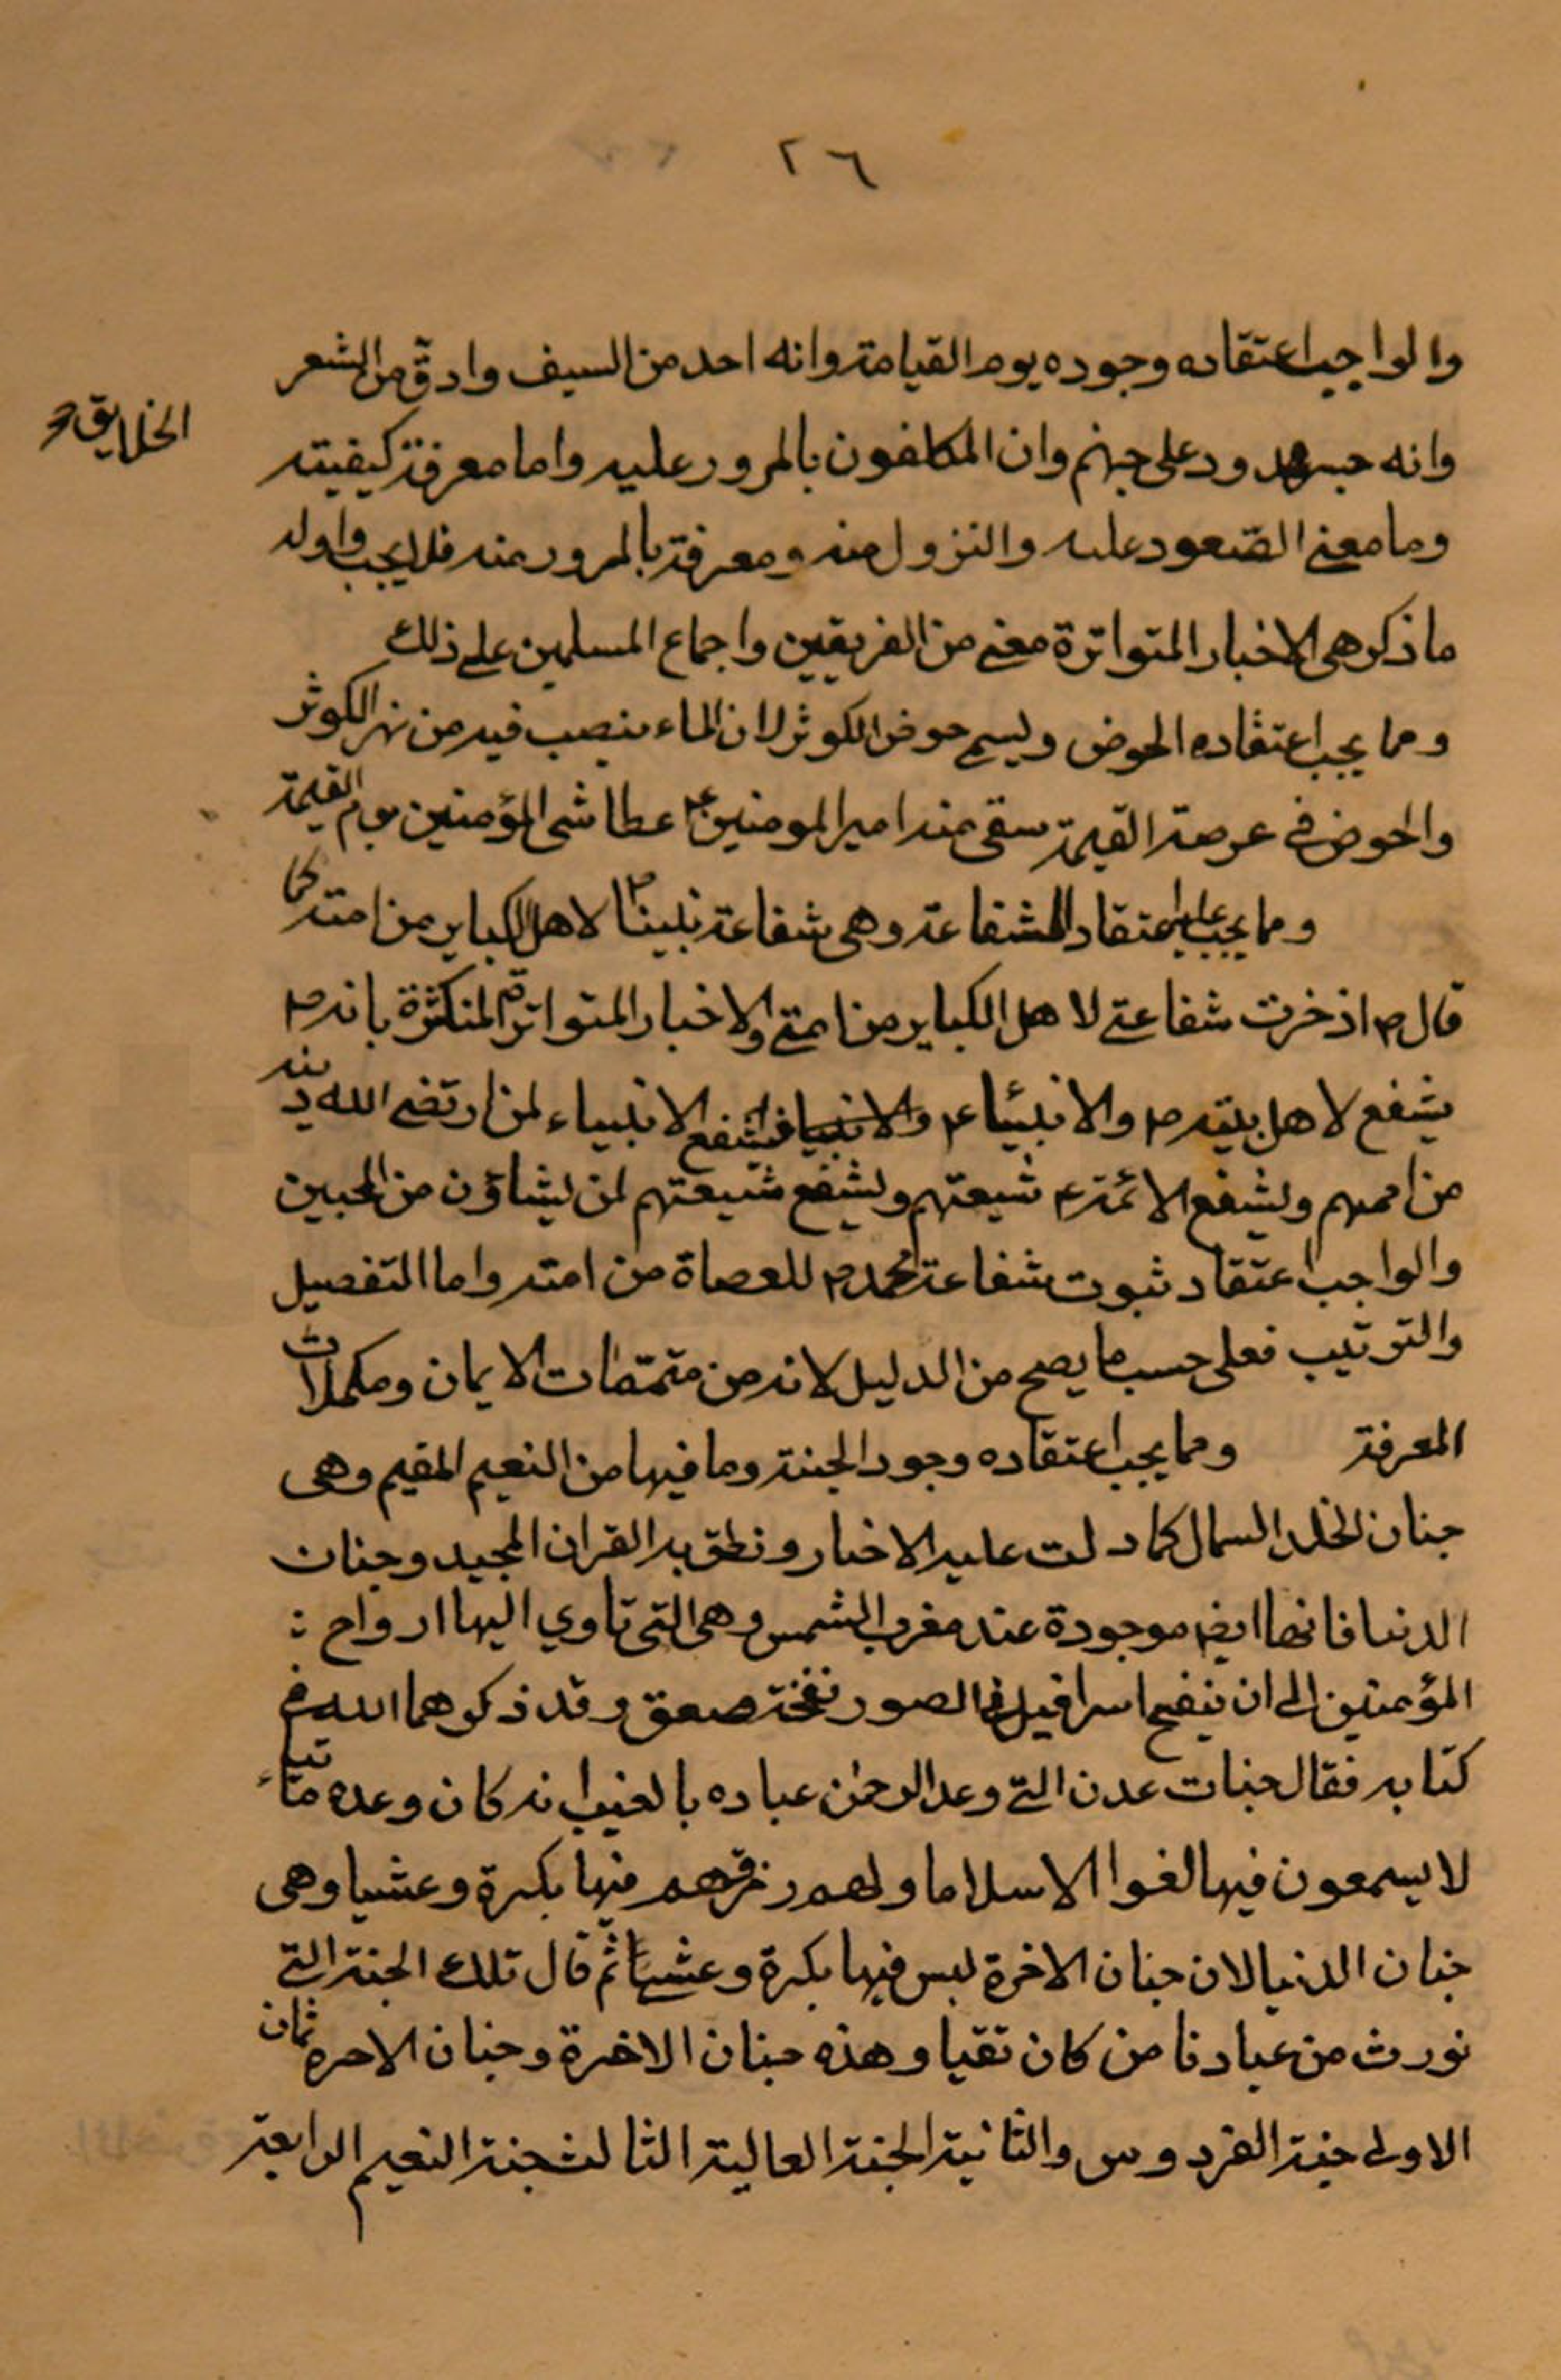 ٢٦
والواجب اعتقاده وجوده يوم القيامة وانه احد من السيف وادق من الشعر
الخلايق
وانه جسر ممدود على جهنم وان المكلفون بالمرور عليه واما معرفة كيفيته
وما معنى الصعود عليه والنزول منه ومعرفة بالمرور منه فلا يجب واوله
ما ذكر هى الاخبار المتواترة معنى من الفريقين واجماع المسلمين على ذلك
ومما يجب اعتقاده الحوض ويسمى حوض الكوثر لان الماء ينصب فيه من نهر الكوثر
والحوض فى عرصة القيمة يسقى منه امير المومنين ع عطاشى المؤمنين يوم القيمة
ومما يجب عليه اعتقاد الشفاعة وهى شفاعة نبينا ص لاهل الكباير من امته كما
قال ص اذخرت شفاعتى لاهل الكباير من امتى والاخبار المتواترة المتكثرة بانه ص
يشفع لاهل بيته ص والانبيٓاء ع والانبيا فيشفع الانبياء لمن ارتضى الله دينه
من اممهم ويشفع الائمة ع شيعتهم ويشفع شيعتهم لمن يشاؤن من المحبين
والواجب اعتقاد ثبوت شفاعة محمد ص للعصاة من امته واما التفصيل
والترتيب فعلى حسب ما يصح من الدليل لانه من متممات الايمان ومكملات
المعرفة ومما يجب اعتقاده وجود الجنة وما فيها من النعيم المقيم وهى
جنان الخلد كما دلت عليه الاخبار ونطق به القران المجيد وجنان
الدنيا فانها ايضا موجودة عند مغرب الشمس وهى التى تاوي اليها ارواح :
المؤمنين الى ان ينفخ اسرافيل فى الصور نفخة صعق وقد ذكرهما الله فى
كتابه فقال جنات عدن التى وعد الرحمن عباده بالغيب انه كان وعده ماتيا
لا يسمعون فيها لغوا الا سلاما ولهم رزقهم فيها بكرة وعشيا وهى
جنان الدنيا لان جنان الاخرة ليس فيها بكرة وعشيا ثم قال تلك الجنة التى
نورث من عبادنا من كان تقيا وهذه جنان الاخرة وجنان الاخرة ثمان
الاولى جنة الفردوس والثانية الجنة العالية الثالث جنة النعيم الرابعة